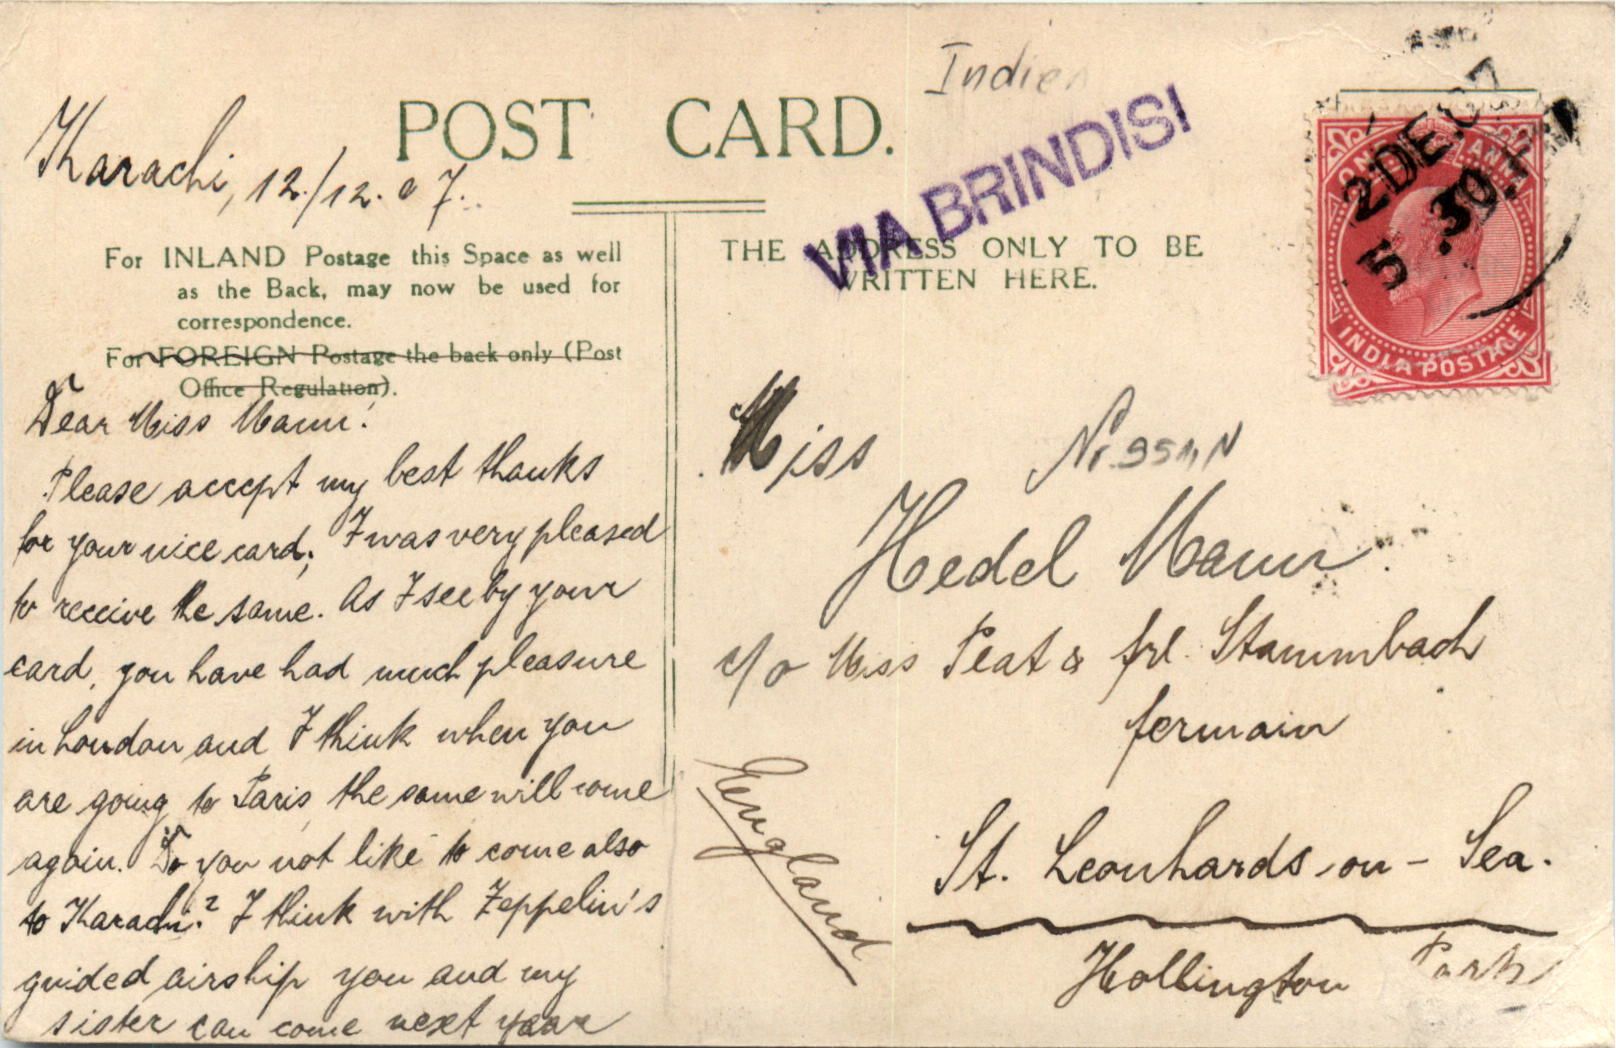 Indien
POST CARD.
Karachi, 12./12. 07.
VIA BRINDISI
2 DE 07
5 .30
ONE ANNA
INDIA POSTAGE
For INLAND Postage this Space as well
as the Back, may now be used for
correspondence.
For FOREIGN Postage the back only (Post
Office Regulation).
THE ADDRESS ONLY TO BE
WRITTEN HERE.
Dear Miss Mann!
Please accept my best thanks
for your nice card; I was very pleased
to receive the same. As I see by your
card, you have had much pleasure
in London and I think when you
are going to Paris, the same will come
again. Do you not like to come also
to Karachi? I think with Zeppelin's
guided airship you and my
sister can come next year
Miss
Hedel Mann
c/o Miss Peat & Frl. Stammbach
fermain
St. Leonhards-on-Sea.
Hollington Park
England